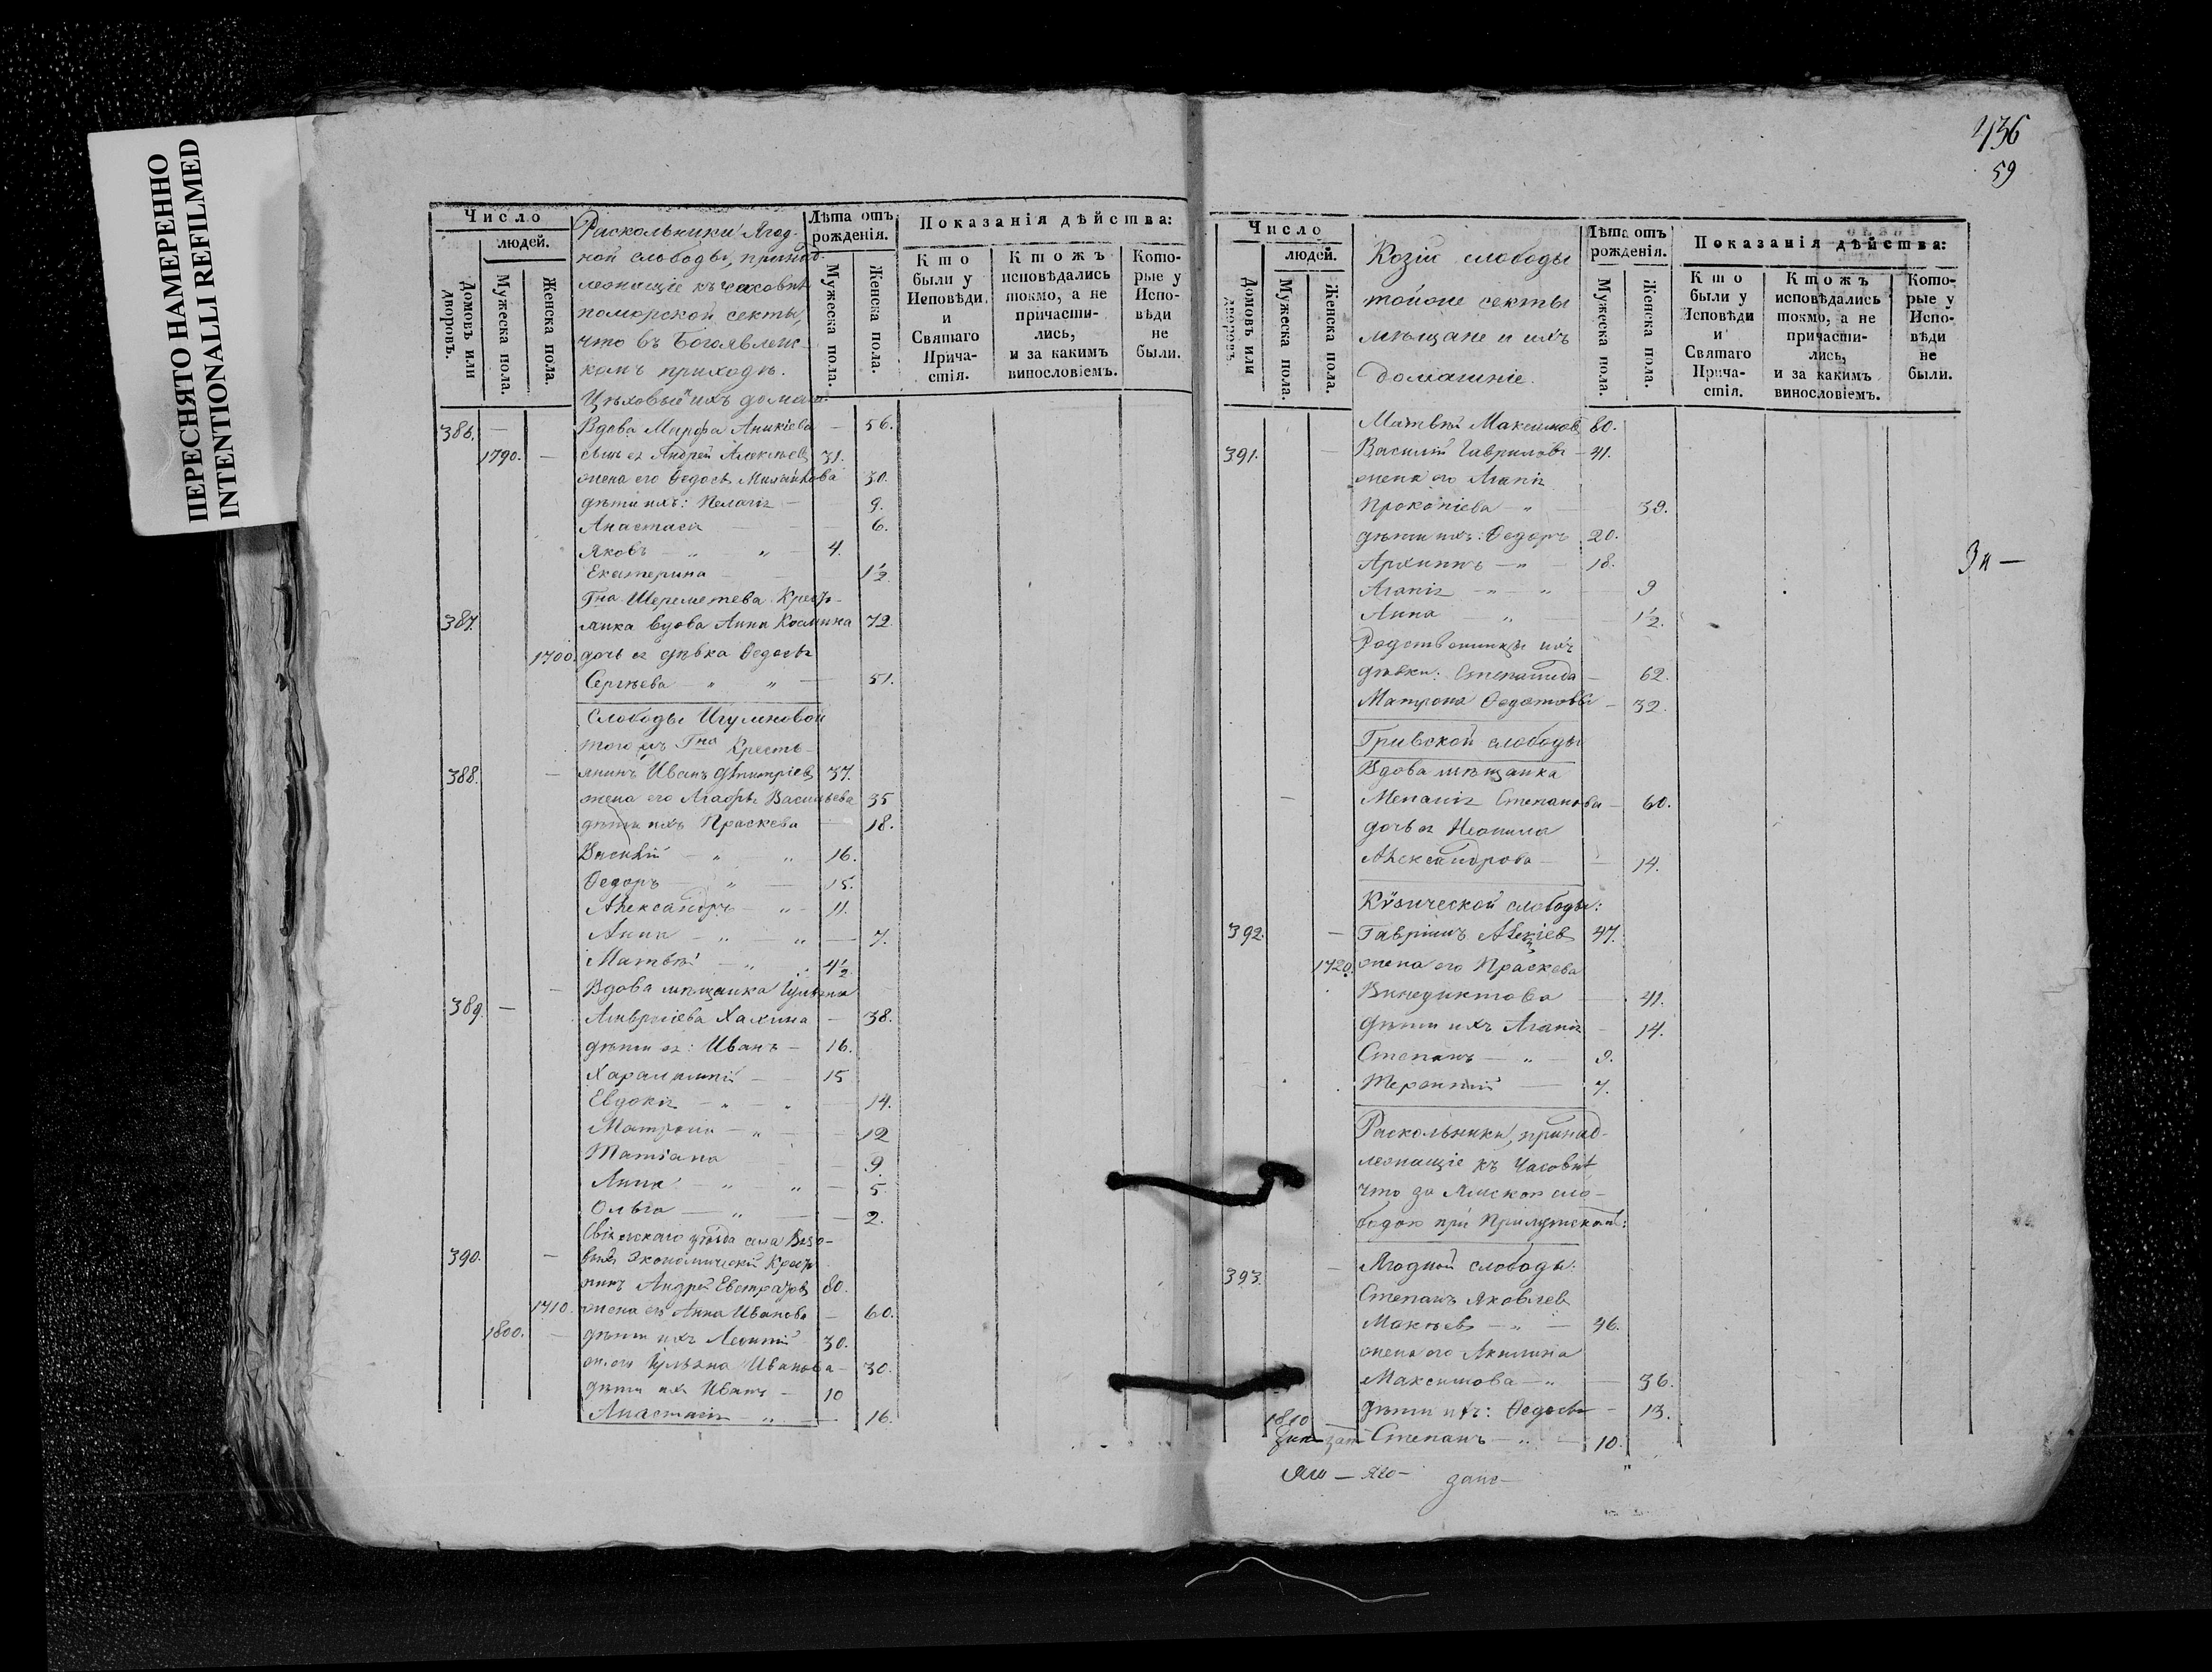 ПЕРЕСНЯТО НАМЕРЕННО
INTENTIONALLI REFILMED
Число
людей.
Домовъ или дворовъ.
Мужеска пола.
Женска пола.
Раскольники Ягод-
ной слободы, принад-
лежащіе къ часовнѣ
поморской секты,
что въ Богоявленс-
комъ приходѣ.
Цѣховыя ихъ
Лѣта отъ рожденія.
Мужеска пола.
Женска пола.
Показанія дѣйства:
Кто были у Исповѣди и Святаго Причастія.
Ктожъ исповѣдались токмо, а не причастились, и за какимъ винословіемъ.
Которые у Исповѣди не были.
386. — Вдова Марфа Аникіева — 56.
1790. — сынъ ея Андрей Алексѣевъ 31.
жена его Ѳедосья 30.
дѣти ихъ: Пелагія — 9.
Анастасія — 6.
Яковъ — „ „ — 4.
Екатерина — 1½
Гна Шереметева Кресть-
387. янка вдова Анна Космина 72.
1700. дочь ея дѣвка Ѳедосья
Сергѣева „ „ — 51.
Слободы Игумновой
того жъ Гна Кресть-
388. — янинъ Иванъ Дмитріевъ 37.
жена его Агафья Васильева 35
дѣти ихъ Праскева — 18.
Василій — „ „ 16.
Ѳедоръ — „ — 15.
Александръ — „ — 11.
Анна — „ — „ — 7.
Матвѣй — „ „ 4½
— Вдова мѣщанка Ульяна
389. — Хахина — 38.
дѣти ея: Иванъ — 16.
Харалампій — 15
Евдокія — „ — „ — 14.
Матрона — „ — 12
Татіана — 9.
Анна — „ — „ — 5.
Ольга — „ — 2.
уѣзда села
390. — Экономическій Кресть-
нинъ Андрей Евстратовъ 80.
1710. жена его Анна Иванова — 60.
1800. — дѣти ихъ Леонтій 30.
жена его Ульяна Иванова — 30.
дѣти ихъ Иванъ — 10
Анастасія — „ — 16.
436
59
Число
людей.
Домовъ или дворовъ.
Мужеска пола.
Женска пола.
Козіи слободы
тойже секты
мѣщане и ихъ
домашніе.
Лѣта отъ рожденія.
Мужеска пола.
Женска пола.
Показанія дѣйства:
Кто были у Исповѣди и Святаго Причастія.
Ктожъ исповѣдались токмо, а не причастились, и за какимъ винословіемъ.
Которые у Исповѣди не были.
Матвѣй Максимовъ 80.
391. — Василій Гавриловъ — 41.
жена его Агапія
Прокопіева „ — 39.
дѣти ихъ: Ѳедоръ 20.
Архиппъ — „ — 18.
Агапія — „ — „ — 9
Анна — „ — 1½.
Родственницы ихъ
дѣвки: Степанида — 62.
Матрона — 32.
Гривской слободы
Вдова мѣщанка
— Меланія Степанова — 60.
дочь ея Неонила
Александрова — 14.
Кѵзической слободы:
392. — Гавріилъ 47.
1720. жена его Праскева
Винедиктова — 41.
дѣти ихъ Агапія — 14.
Степанъ — „ — 9.
Терентій — 7.
Раскольники, принад-
лежащіе къ Часовнѣ
что за Ямскою сло-
бодою при
393. — Ягодной слободы:
Степанъ Яковлевъ
Мокѣевъ — „ — 46.
жена его Акилина
Максимова — „ — 36.
1810 дѣти ихъ: Ѳедосья — 13.
Степанъ — „ — 10.